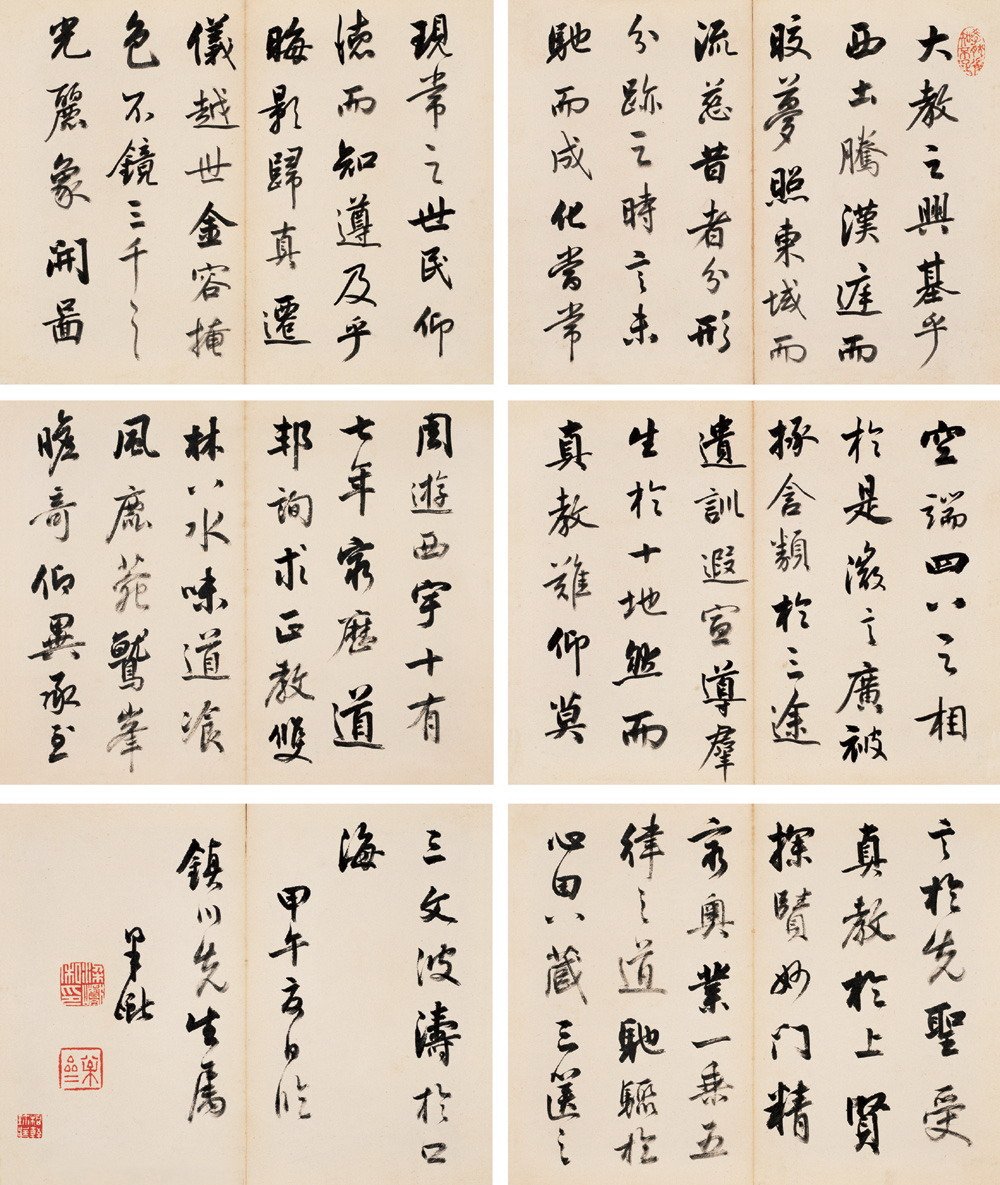 大教之興基乎
西土騰漢庭而
皎夢照東域而
流慈昔者分形
分跡之時言未
馳而成化當常
現常之世民仰
德而知遵及乎
晦影歸真遷
儀越世金容掩
色不鏡三千之
光麗象開圖
空端四八之相
於是微言廣被
拯含類於三途
遺訓遐宣導羣
生於十地然而
真教難仰莫
周遊西宇十有
七年窮歷道
邦詢求正教雙
林八水味道湌
風鹿菀鷲峯
瞻奇仰異承至
言於先聖受
真教於上賢
探賾妙門精
窮奧業一乘五
律之道馳驟於
心田八藏三篋之
三文波濤於口
海
甲午夏日臨
鎮川先生屬
梁巘